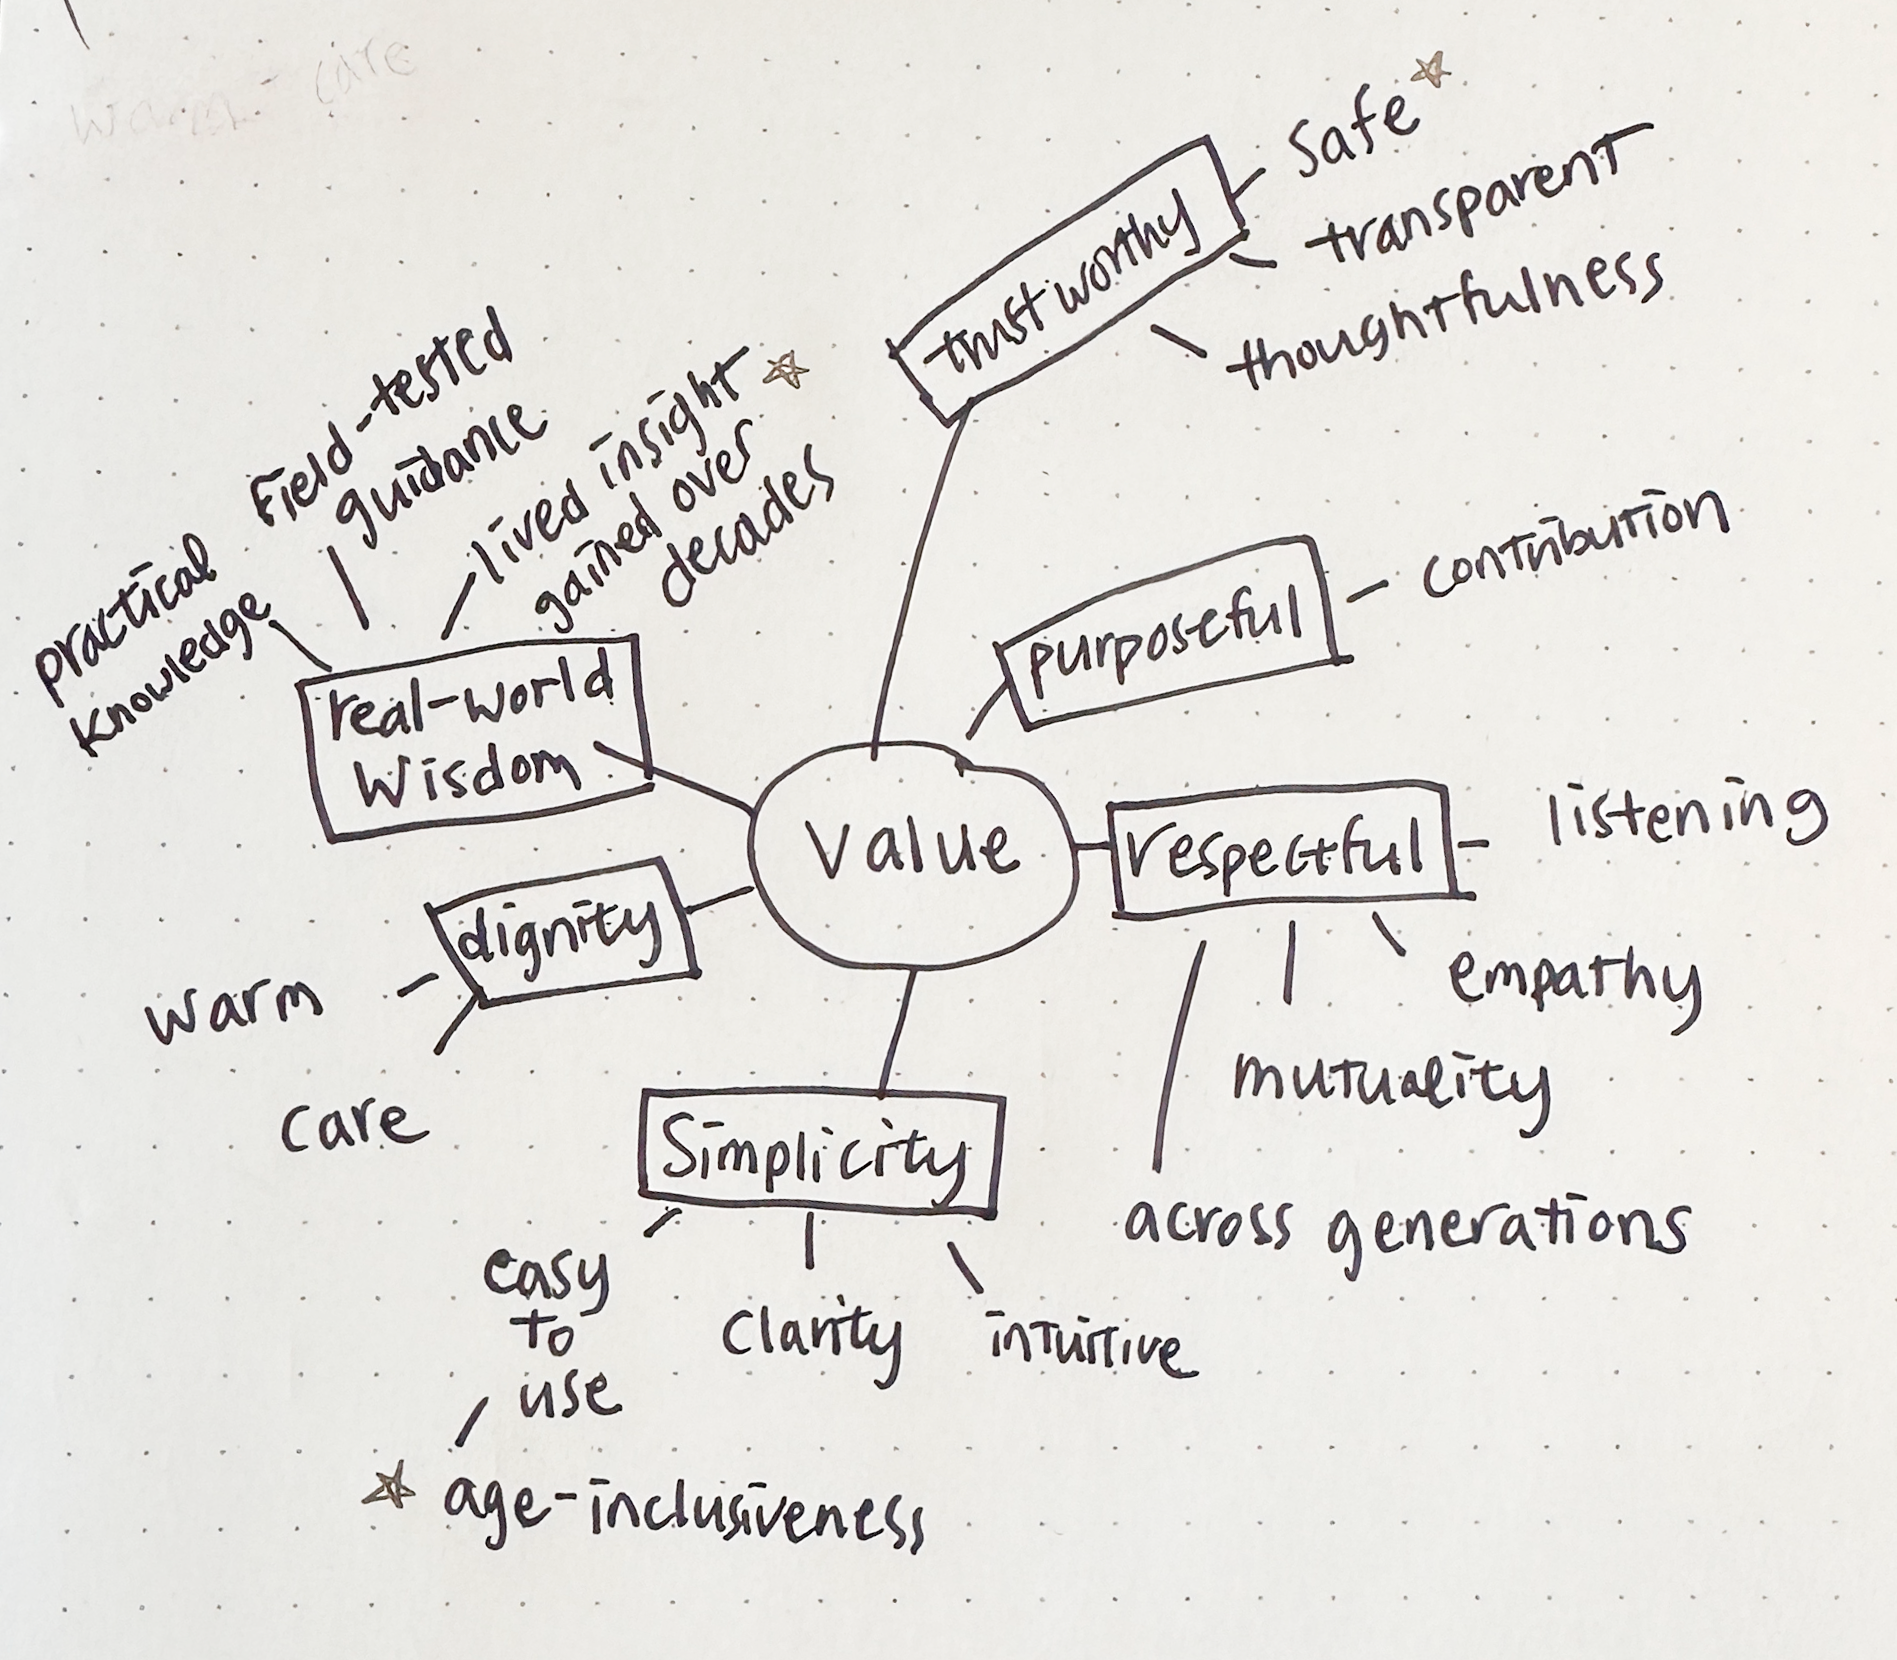 warm care
Safe
transparent
thoughtfulness
trustworthy
Field-tested
guidance
lived insight
gained over
decades
practical
knowledge
real-world
Wisdom
purposeful
contribution
Value
respectful
listening
empathy
mutuality
across generations
dignity
warm
care
Simplicity
easy
to
use
Clarity
intuitive
age-inclusiveness